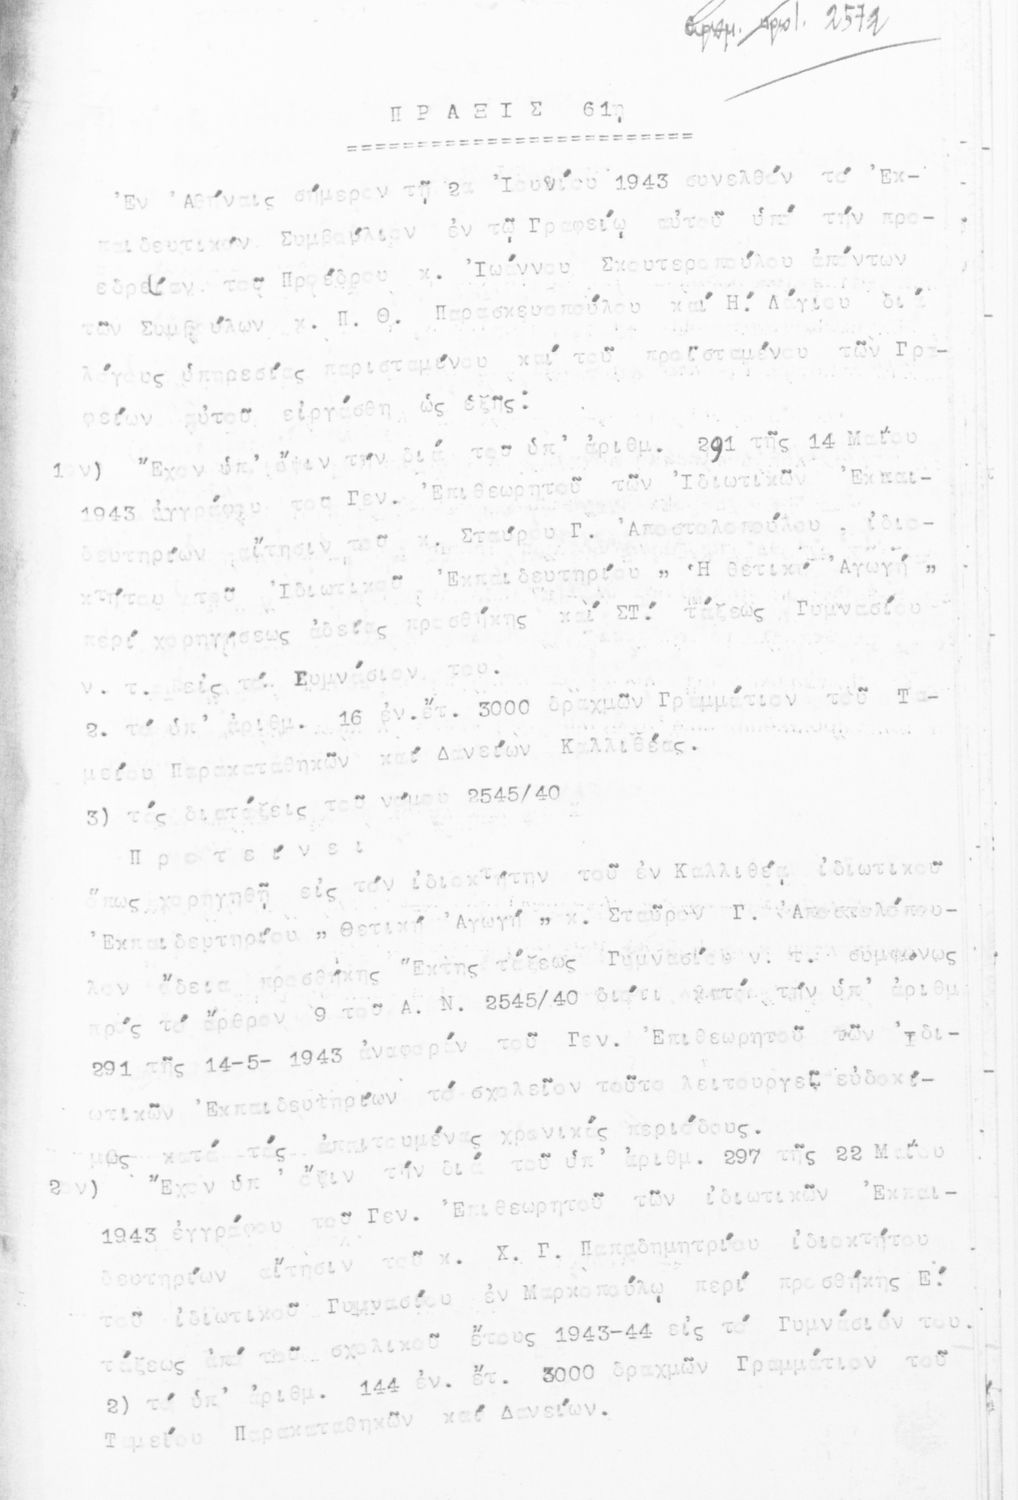 αριθμ. πρωτ. 2572
ΠΡΑΞΙΣ 61η
==========================
Ἐν Ἀθήναις σήμερον τῇ 2α Ἰουνίου 1943 συνελθόν τό Ἐκ-
παιδευτικόν Συμβούλιον ἐν τῷ Γραφείῳ αὐτοῦ ὑπό τήν προ-
εδρείαν τοῦ Προέδρου κ. Ἰωάννου Σκουτεροπούλου ἀπόντων
τῶν Συμβούλων κ. Π. Θ. Παρασκευοπούλου καί Η. Λάγιου διά
λόγους ὑπηρεσίας παρισταμένου καί τοῦ προϊσταμένου τῶν Γρα-
φείων αὐτοῦ εἰργάσθη ὡς ἑξῆς:
1ον) Ἔχον ὑπ' ὄψιν τήν διά τοῦ ὑπ' ἀριθμ. 291 τῆς 14 Μαΐου
1943 ἐγγράφου τοῦ Γεν. Ἐπιθεωρητοῦ τῶν Ἰδιωτικῶν Ἐκπαι-
δευτηρίων αἴτησιν τοῦ κ. Σταύρου Γ. Ἀποστολοπούλου , ἰδιο-
κτήτου τοῦ Ἰδιωτικοῦ Ἐκπαιδευτηρίου „ Ἡ θετική Ἀγωγή „
περί χορηγήσεως ἀδείας προσθήκης καί ΣΤ! τάξεως Γυμνασίου
ν. τ. εἰς τό Γυμνάσιον του.
2. τό ὑπ' ἀριθμ. 16 ἐν.ἔτ. 3000 δραχμῶν Γραμμάτιον τοῦ Τα-
μείου Παρακαταθηκῶν καί Δανείων Καλλιθέας.
3) τάς διατάξεις τοῦ νόμου 2545/40
Προτείνει
ὅπως χορηγηθῇ εἰς τόν ἰδιοκτήτην τοῦ ἐν Καλλιθέᾳ ἰδιωτικοῦ
Ἐκπαιδευτηρίου „ Θετική Ἀγωγή „ κ. Σταῦρον Γ. Ἀποστολόπου-
λον ἄδεια προσθήκης Ἕκτης τάξεως Γυμνασίου ν. τ. συμφωνως
πρός τό ἄρθρον 9 τοῦ Α. Ν. 2545/40 διότι κατά τήν ὑπ' ἀριθμ
291 τῆς 14-5- 1943 ἀναφοράν τοῦ Γεν. Ἐπιθεωρητοῦ τῶν Ἰδι-
ωτικῶν Ἐκπαιδευτηρίων τό σχολεῖον τοῦτο λειτουργεῖ εὐδοκί-
μως κατά τάς ἀπαιτουμένας χρονικάς περιόδους.
2ον) Ἔχον ὑπ' ὄψιν τήν διά τοῦ ὑπ' ἀριθμ. 297 τῆς 22 Μαΐου
1943 ἐγγράφου τοῦ Γεν. Ἐπιθεωρητοῦ τῶν ἰδιωτικῶν Ἐκπαι-
δευτηρίων αἴτησιν τοῦ κ. Χ. Γ. Παπαδημητρίου ἰδιοκτήτου
τοῦ ἰδιωτικοῦ Γυμνασίου ἐν Μαρκοπούλῳ περί προσθήκης Ε!
τάξεως ἀπό τοῦ σχολικοῦ ἔτους 1943-44 εἰς τό Γυμνάσιόν του.
2) τό ὑπ' ἀριθμ. 144 ἐν. ἔτ. 3000 δραχμῶν Γραμμάτιον τοῦ
Ταμείου Παρακαταθηκῶν καί Δανείων.